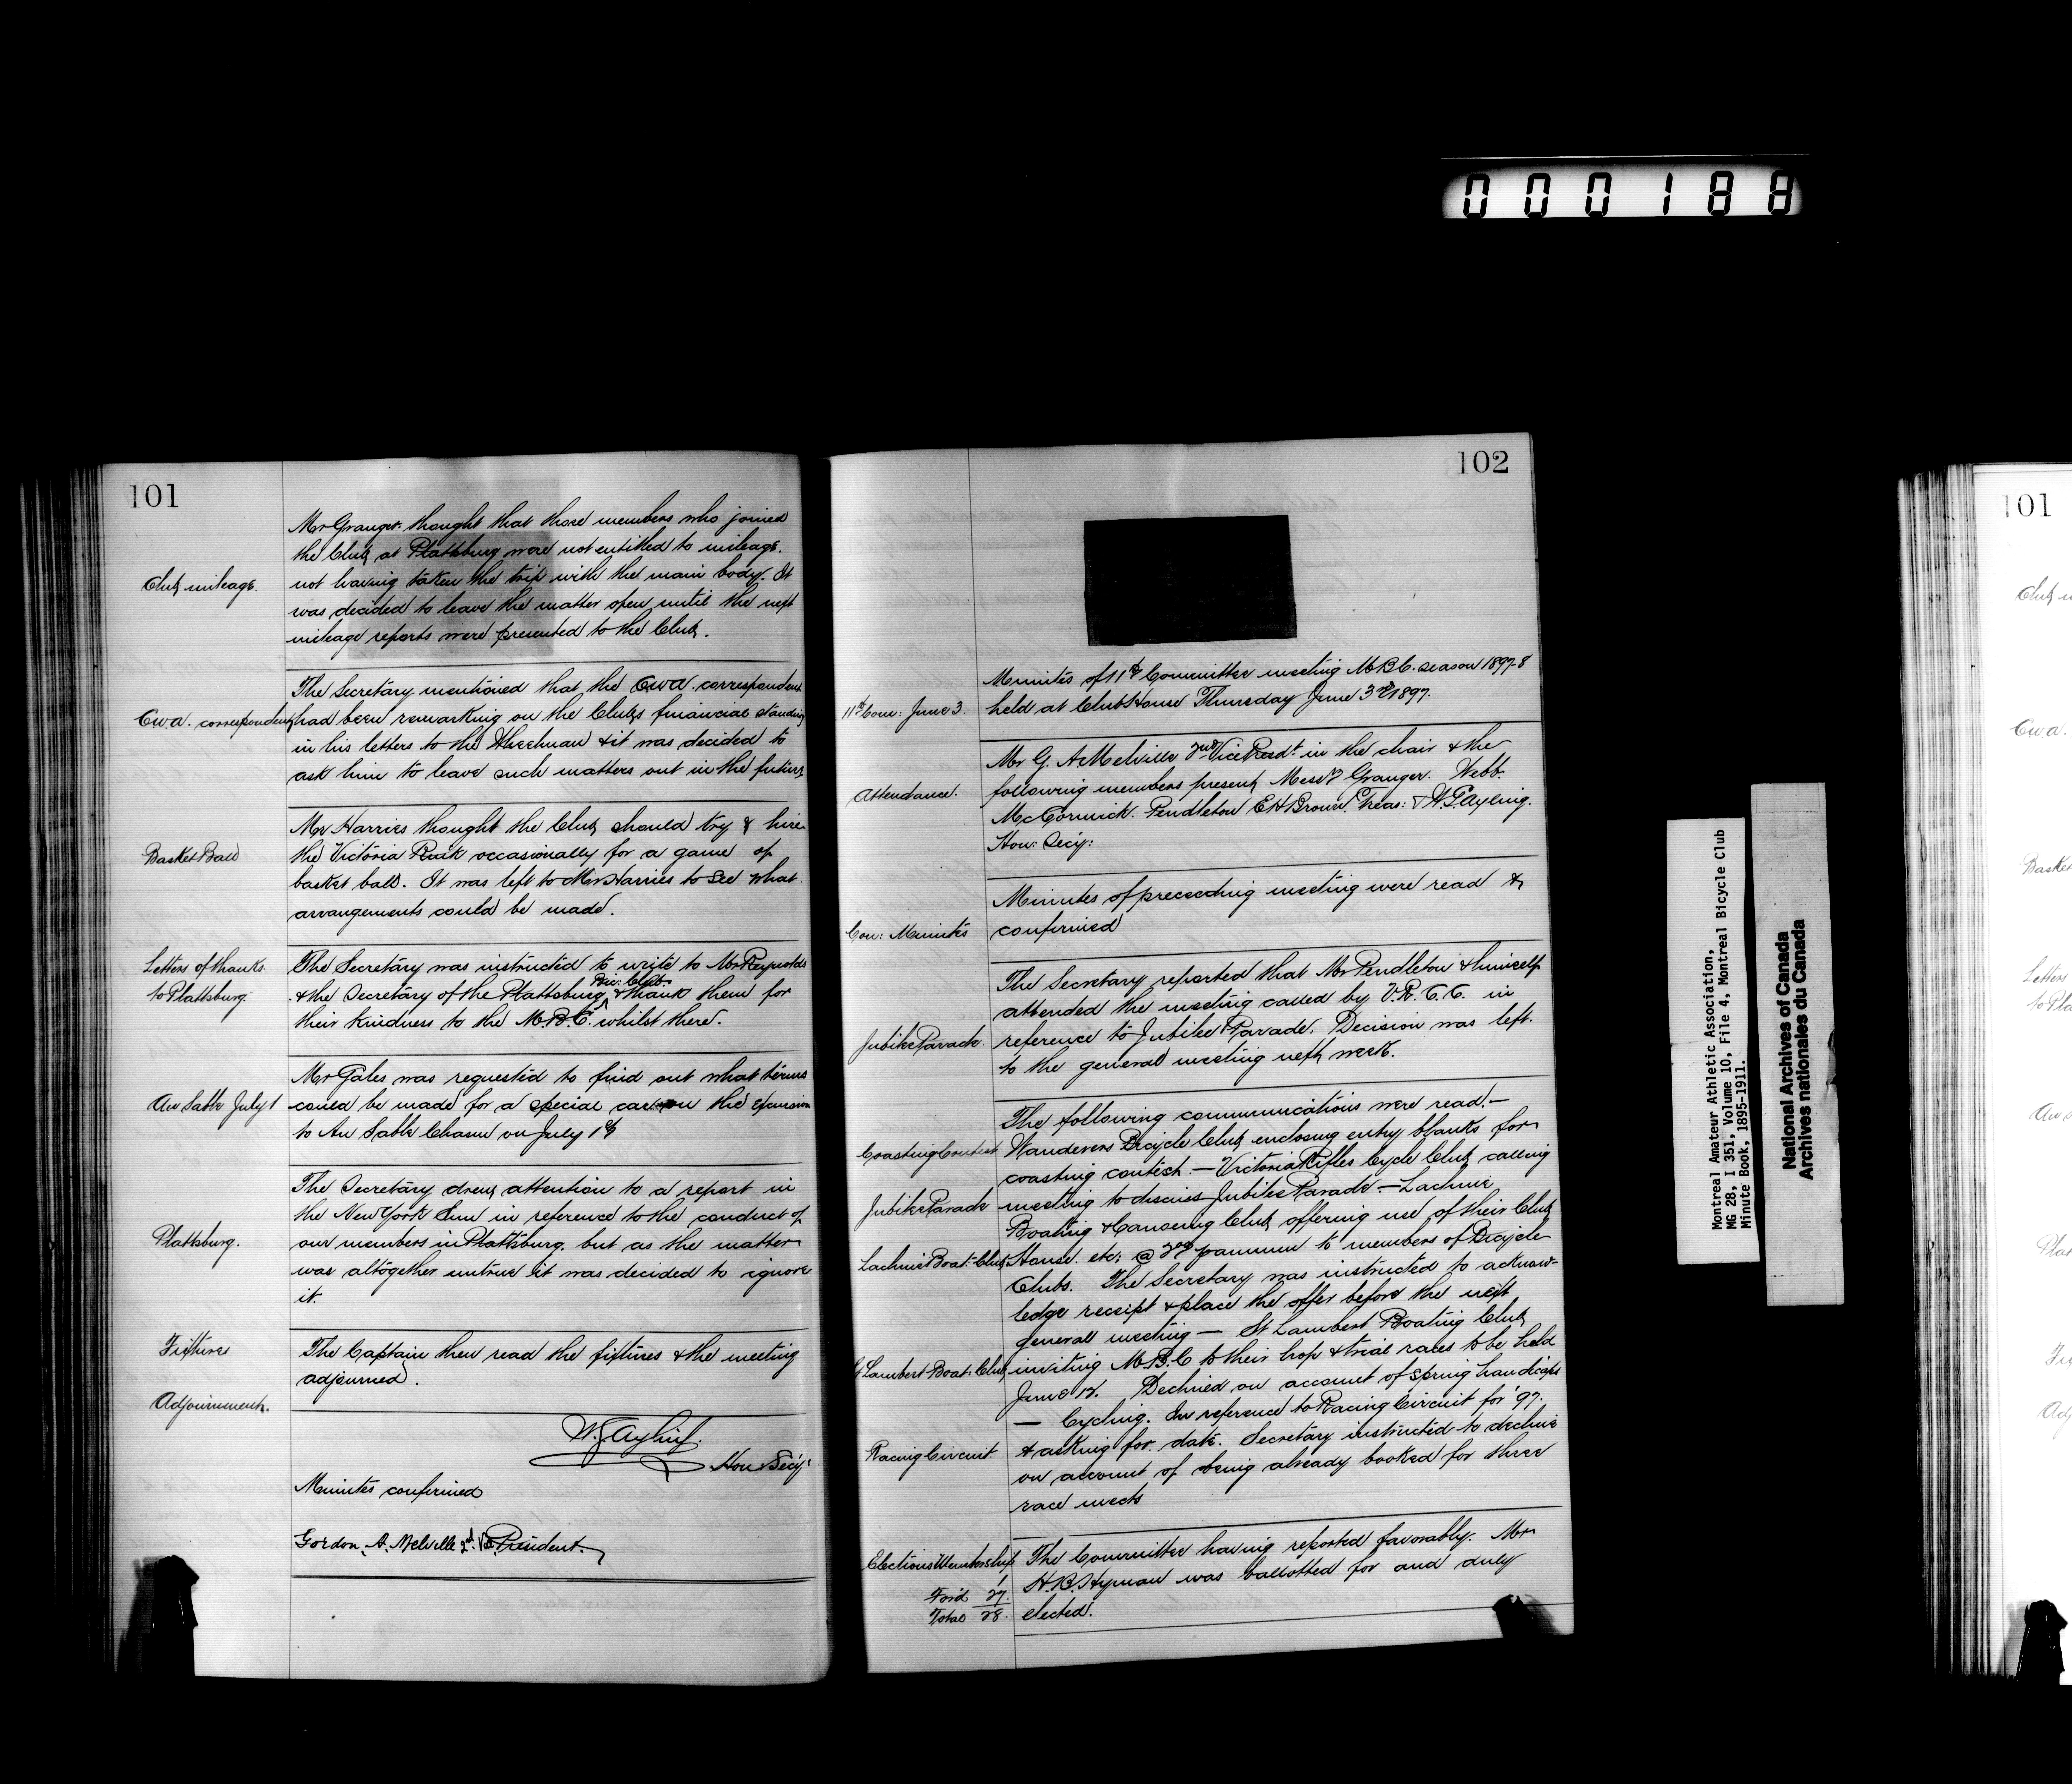 000188
101
Mr Granger thought that those members who joined
the Club at Plattsburg were not entitled to mileage.
Club mileage.
not having taken the trip with the main body. It
was decided to leave the matter open until the next
mileage reports were presented to the Club.
The Secretary mentioned that the C.W.A. correspondent
C.W.A. correspondent
had been remarking on the Clubs financial standing
in his letters to the Wheelman & it was decided to
ask him to leave such matters out in the future
Mr Harries thought the Club should try & hire
Basket Ball
the Victoria Rink occasionally for a game of
basket ball. It was left to Mr Harries to see what
arrangements could be made.
Letters of thanks
to Plattsburg.
The Secretary was instructed to write to Mr Reynolds
& the Secretary of the Plattsburg Bic: Club & thank them for
their kindness to the M.B.C. whilst there.
Mr Gales was requested to find out what terms
Au Sable July 1
could be made for a special car on the excursion
to Au Sable Chasm on July 1st
The Secretary drew attention to a report in
the New York Sun in reference to the conduct of
Plattsburg.
our members in Plattsburg. but as the matter
was altogether untrue it was decided to ignore
it.
Fixtures
The Captain then read the fixtures & the meeting
adjourned.
Adjournment.
W.G. Ayling.
Hon Secy:
Minutes confirmed
Gordon. A. Melville 2nd. Vice President.
102
Minutes of 11th Committee meeting M.B.C. season 1897-8
11th Com: June 3.
held at Club House Thursday June 3rd 1897.
Mr G. A Melville 2nd Vice Presdt. in the chair & the
Attendance.
following members present, Messrs Granger. Webb.
McCormick. Pendleton E H Brown. Treas: & W.G. Ayling.
Hon: Secy:
Minutes of preceeding meeting were read &
Con: Minutes
confirmed
The Secretary reported that Mr Pendleton & himself
attended the meeting called by V.R.C.C. in
Jubilee Parade.
reference to Jubilee Parade. Decision was left
to the general meeting next week.
The following communications were read:—
Coasting Contest
Wanderers Bicycle Club enclosing entry blanks for
coasting contest. — Victoria Rifles Cycle Club, calling
Jubilee Parade
meeting to discuss Jubilee Parade — Lachine
Boating & Canoeing Club, offering use of their Club
Lachine Boat: Club
House. etc; @ pannum to members of Bicycle
Clubs. The Secretary was instructed to acknow-
ledge receipt & place the offer before the next
general meeting — St Lambert Boating Club,
St Lambert Boat: Club
inviting M.B.C to their hop & trial races to be held
June 12. Declined on account of spring handicaps
— Cycling. In reference to Racing Circuit for '97.
Racing Circuit.
& asking for date. Secretary instructed to decline
on account of being already booked for three
race meets
Elections Membership
The Committee having reported favorably. Mr
H.B. Hyman was ballotted for and duly
elected.
1
Ford 27.
Total 28.
Montreal Amateur Athletic Association,
MG 28, I 351, Volume 10, File 4, Montreal Bicycle Club
Minute Book, 1895-1911.
National Archives of Canada
Archives nationales du Canada
101